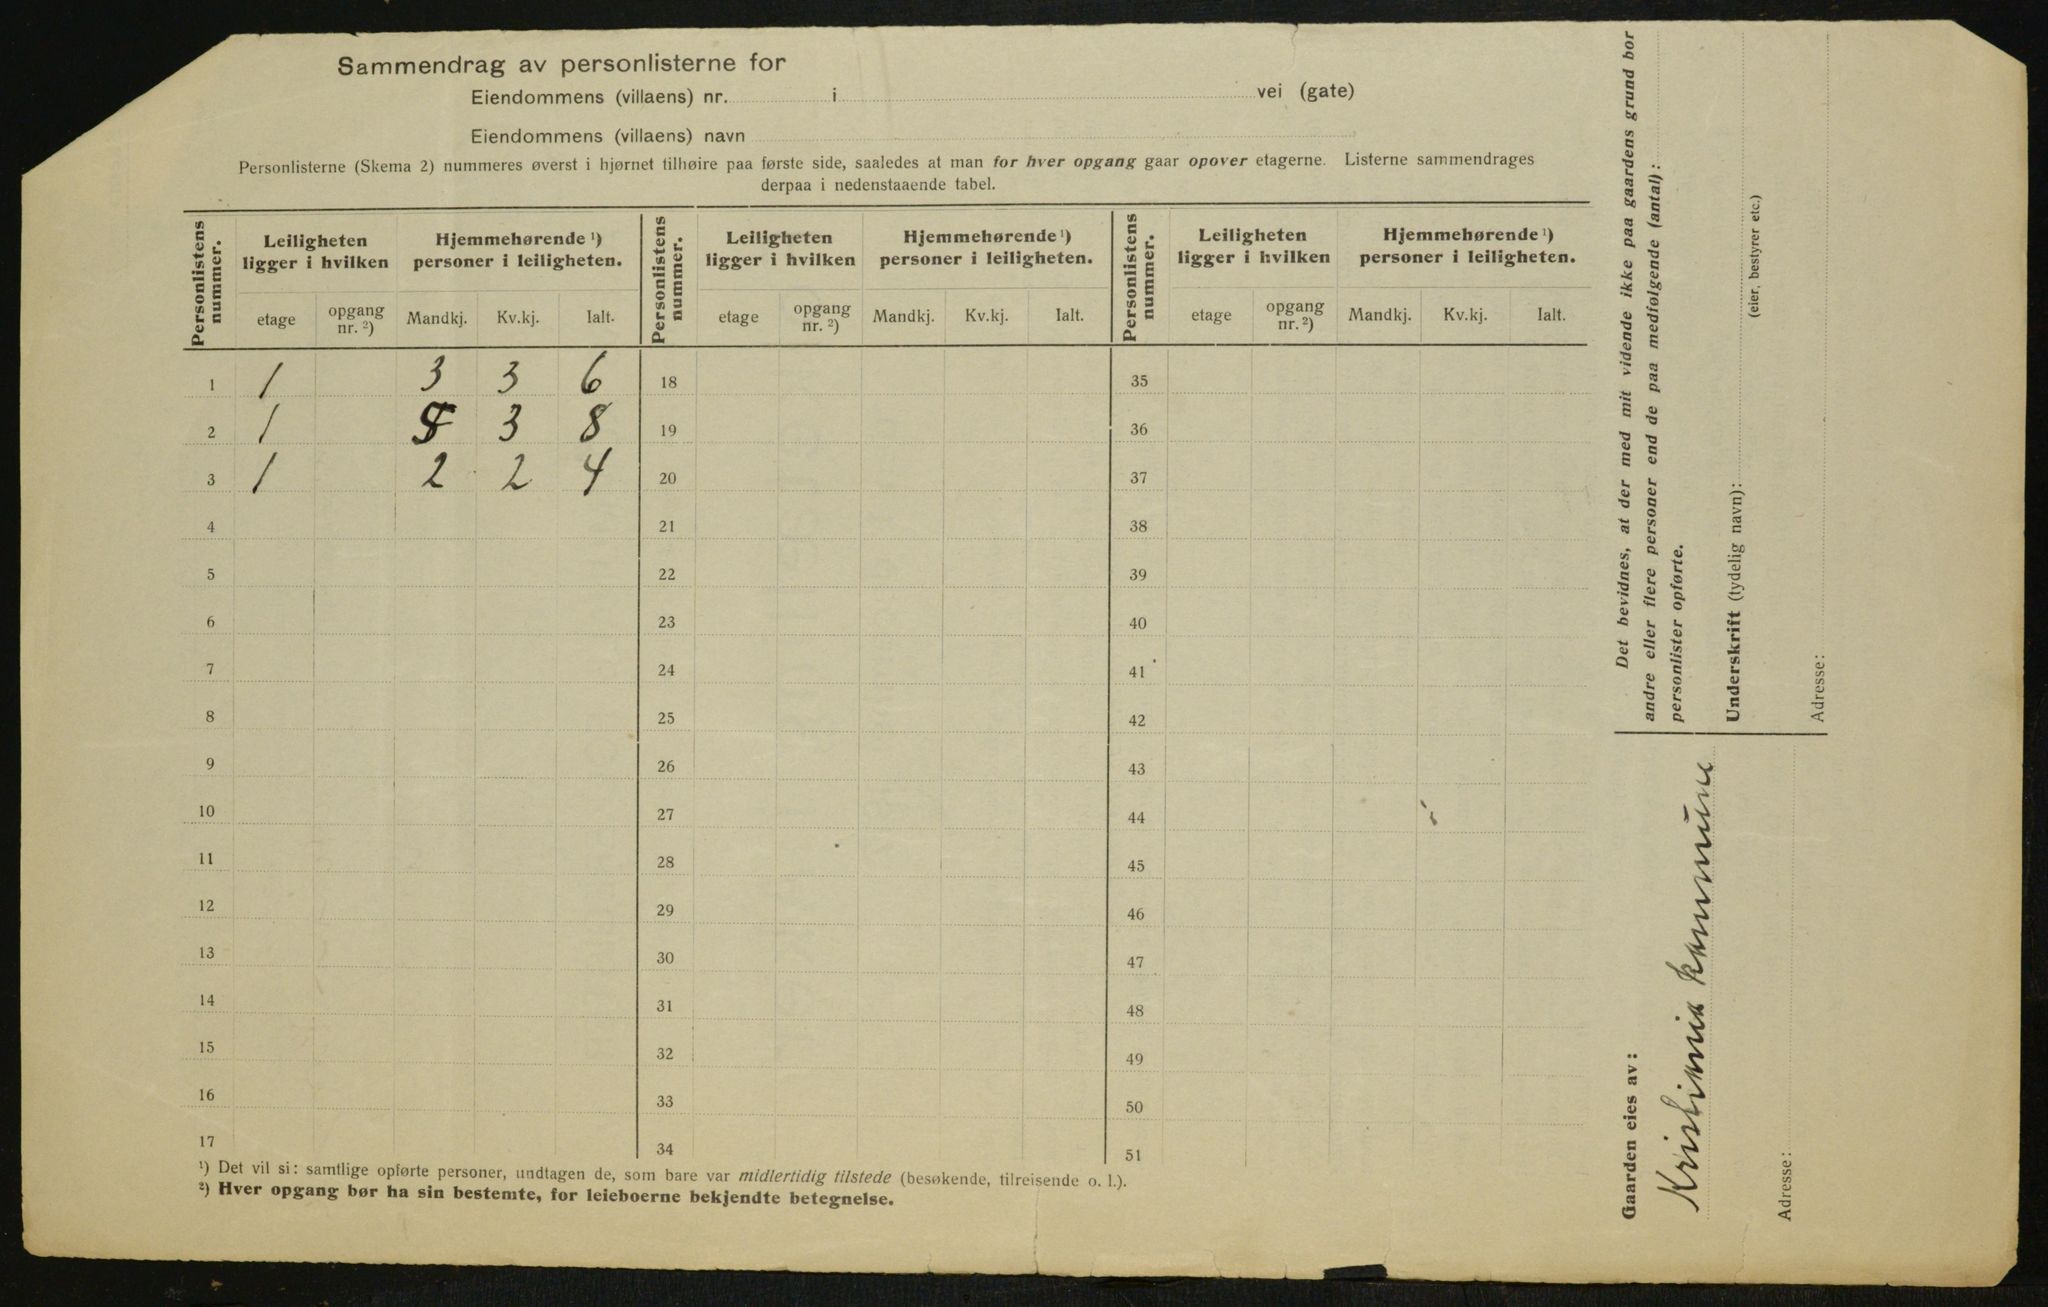 Sammendrag av personlisterne for
Eiendommens (villaens) nr. i vei (gate)
Eiendommens (villaens) navn
Personlisterne (Skema 2) nummeres øverst i hjørnet tilhøire paa første side, saaledes at man for hver opgang gaar opover etagerne. Listerne sammendrages
derpaa i nedenstaaende tabel.
Personlistens nummer. Leiligheten ligger i hvilken Hjemmehørende ¹) personer i leiligheten. Personlistens nummer. Leiligheten ligger i hvilken Hjemmehørende ¹) personer i leiligheten. Personlistens nummer. Leiligheten ligger i hvilken Hjemmehørende ¹) personer i leiligheten.
etage opgang nr. ²) Mandkj. Kv.kj. Ialt. etage opgang nr. ²) Mandkj. Kv.kj. Ialt. etage opgang nr. ²) Mandkj. Kv.kj. Ialt.
1 1 3 3 6 18 35
2 1 5 3 8 19 36
3 1 2 2 4 20 37
4 21 38
5 22 39
6 23 40
7 24 41
8 25 42
9 26 43
10 27 44
11 28 45
12 29 46
13 30 47
14 31 48
15 32 49
16 33 50
17 34 51
¹) Det vil si: samtlige opførte personer, undtagen de, som bare var midlertidig tilstede (besøkende, tilreisende o. l.).
²) Hver opgang bør ha sin bestemte, for leieboerne bekjendte betegnelse.
Det bevidnes, at der med mit vidende ikke paa gaardens grund bor
andre eller flere personer end de paa medfølgende (antal):
personlister opførte.
Underskrift (tydelig navn):
(eier, bestyrer etc.)
Adresse:
Gaarden eies av:
Kristiania kommune
Adresse: